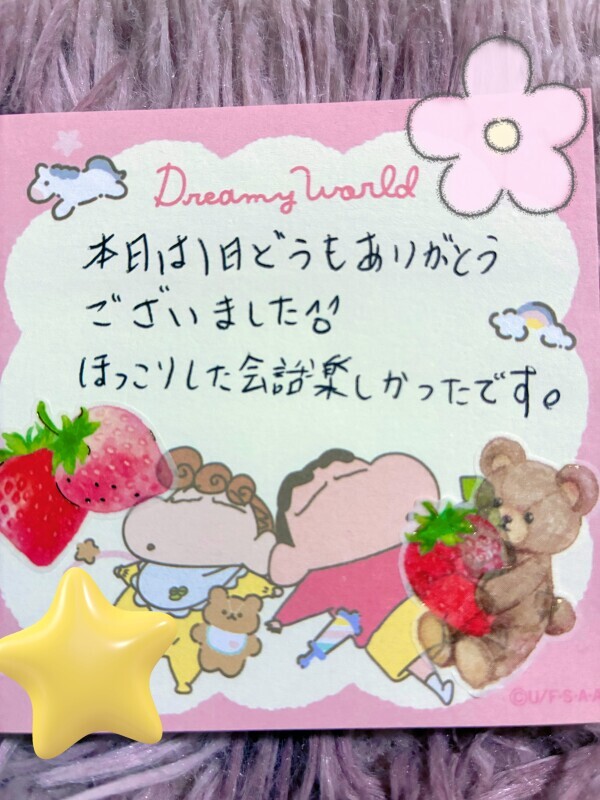 Dreamy World
本日は1日どうもありがとう
ございました^^
ほっこりした会話楽しかったです。
©U/F・S・A・A